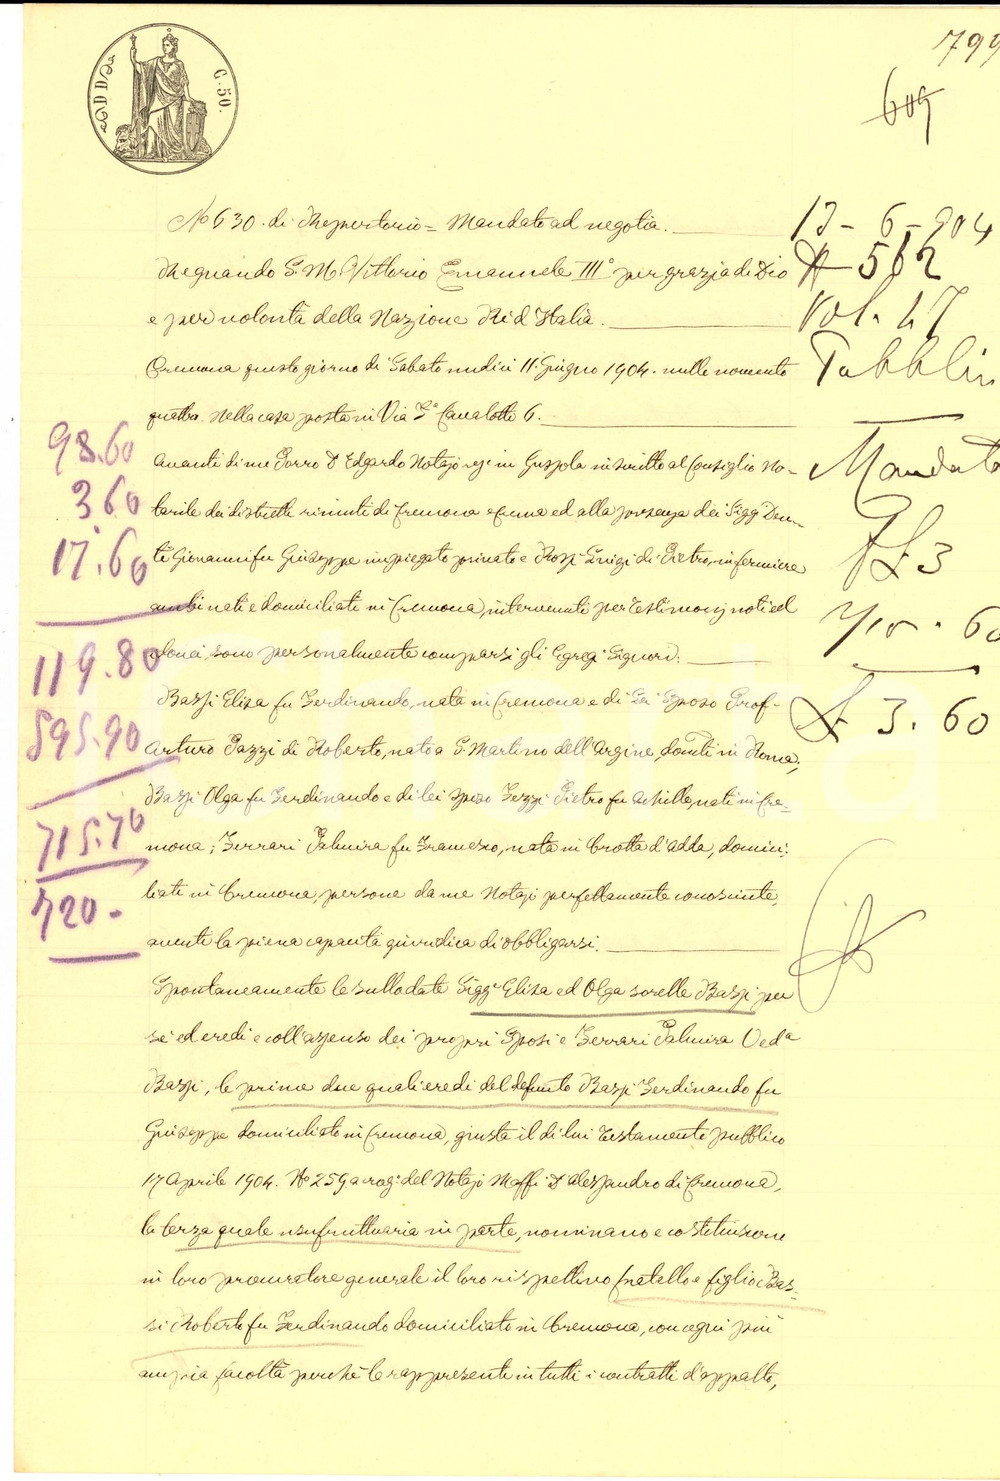 799
609
C. 50.
No 630. di Repertorio = Mandato ad negotia.
Regnando S. M. Vittorio Emanuele III° per grazia di Dio
e per volontà della Nazione Re d'Italia.
Cremona questo giorno di Sabato undici 11. Giugno 1904. mille novecento
quattro nella casa posta in Via F. Cavalotti 6.
Avanti di me Porro Dr Edgardo Notajo res. in Gussola inscritto al Consiglio No-
tarile dei distretti riuniti di Cremona e Crema ed alla presenza dei Sigg. Den-
ti Giovanni fu Giuseppe impiegato privato e Rossi Luigi di Pietro, infermiere
ambi nati e domiciliati in Cremona, intervenuti per testimonj noti ed
idonei, sono personalmente comparsi gli Egregi Signori.
Bassi Elisa fu Ferdinando, nata in Cremona e di Lei Sposo Prof.
Arturo Pazzi di Roberto, nato a S. Martino dell'Argine, domti in Roma,
Bassi Olga fu Ferdinando e di lei sposo Fezzi Pietro fu Achille, nati in Cre-
mona; Ferrari Palmira fu Francesco, nata in Crotta d'Adda, domici-
liati in Cremona, persone da me Notajo perfettamente conosciute,
aventi la piena capacità giuridica di obbligarsi.
Spontaneamente le sullodate Sigg.e Elisa ed Olga sorelle Bassi per
sè ed eredi e coll'assenso dei propri Sposi e Ferrari Palmira Ved.a
Bassi, le prime due quali eredi del defunto Bassi Ferdinando fu
Giuseppe domiciliato in Cremona, giusta il di lui testamento pubblico
17 Aprile 1904. No 259 a rog. del Notajo Maffi Dr Alessandro di Cremona,
la terza quale usufruttuaria in parte, nominano e costituiscono
in loro procuratore generale il loro rispettivo fratello e figlio Bas-
si Roberto fu Ferdinando domiciliato in Cremona, con ogni più
ampia facoltà perchè le rappresenti in tutti i contratti d'appalto,
98.60
3 60
17.60
119.80
595.90
715.70
720 -
13 - 6 - 904
N 562
Vol. 47
Pubblici
Mandato
£ 3
60
£ 3. 60